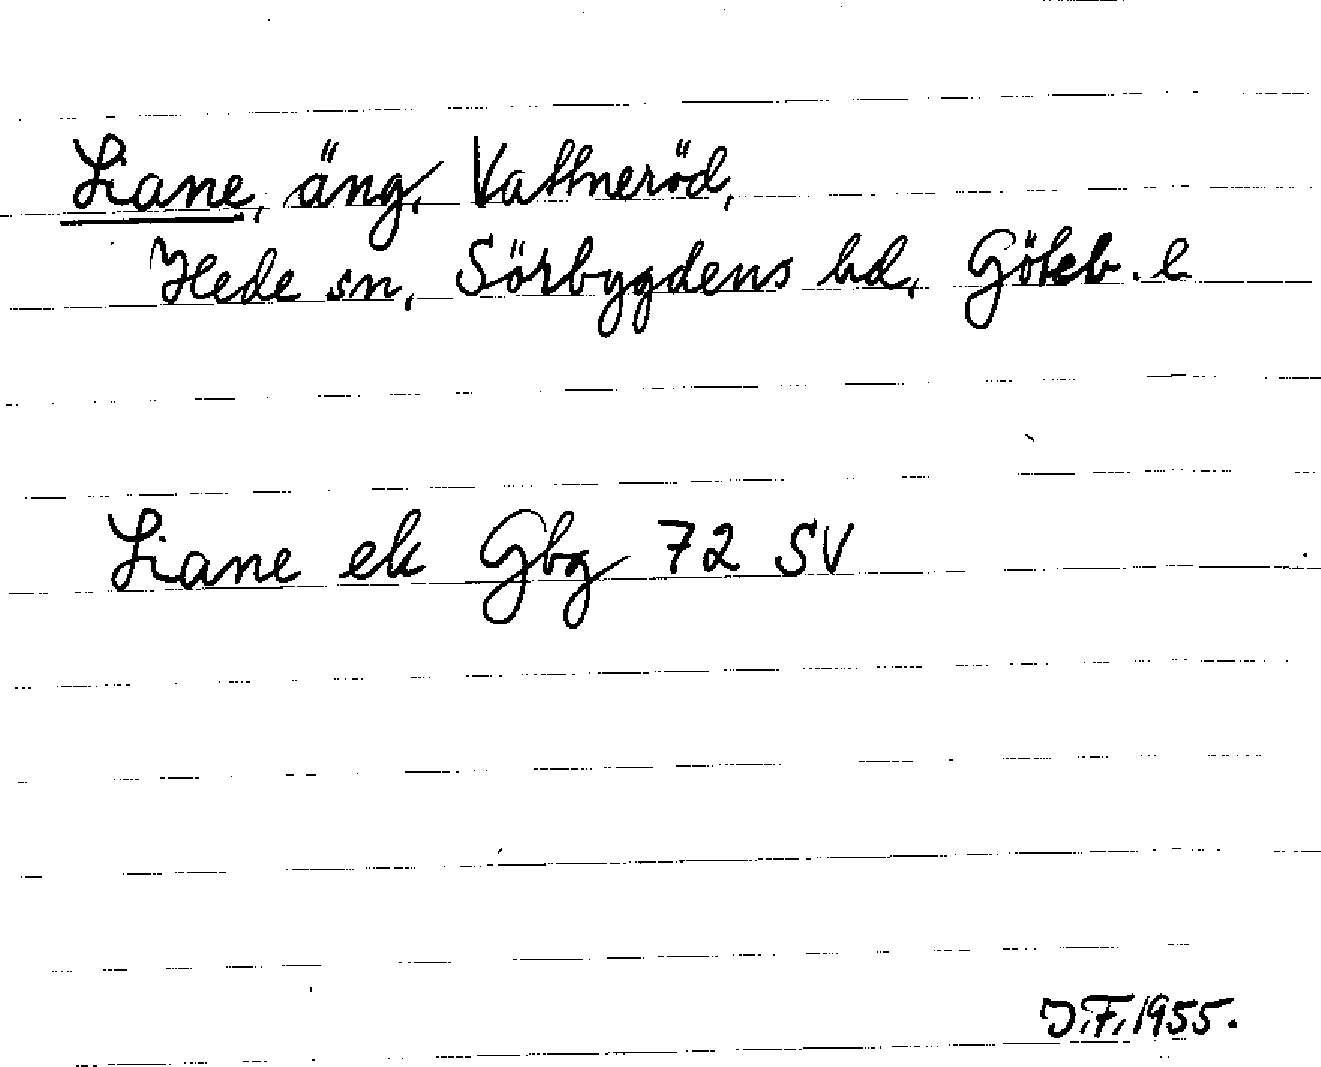 Liane, äng, Vattneröd,
Hede sn, Sörbygdens hd, Göteb. l
Liane ek Gbg 72 SV
J.F. 1955.